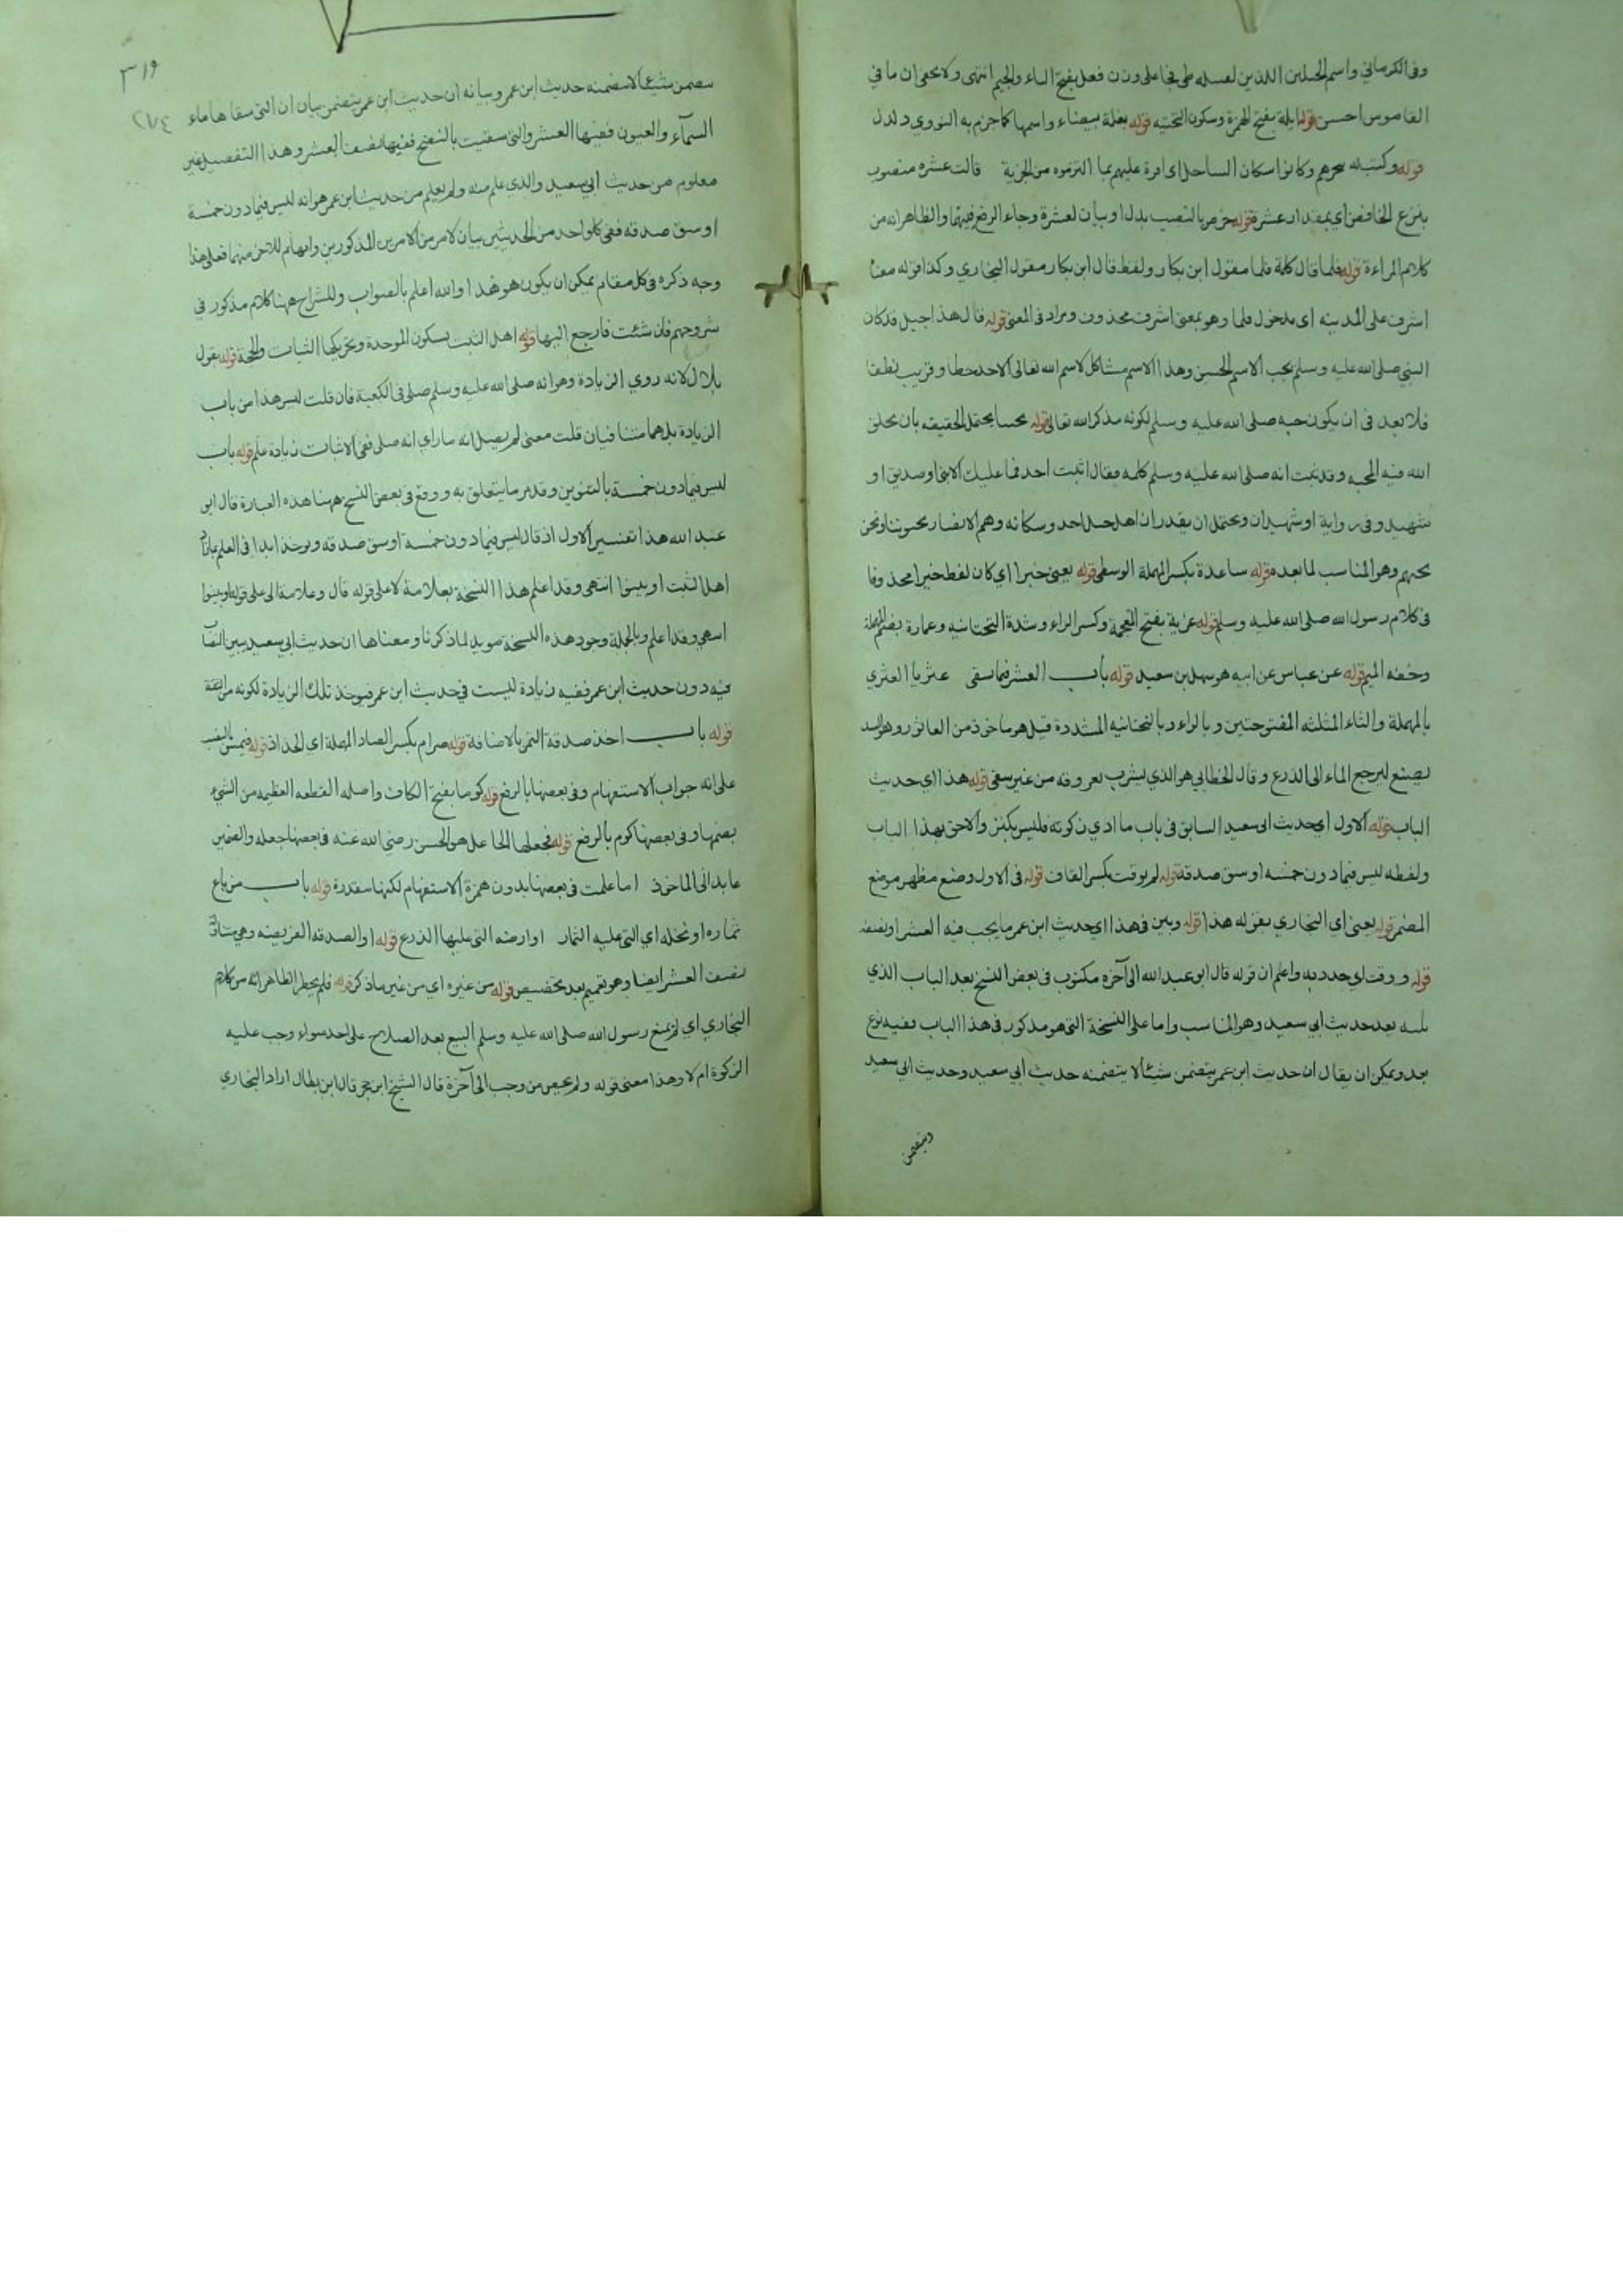 وفى الكرمانى واسم الجبلين اللذين لفسله طى فجا على وزن فعل بفتح الفاء والجيم انتهى ولا يخفى ان ما فى
القاموس احسن قوله ايلة بفتح الهمزة وسكون التحتيه قوله بغلة بيضاء واسمها كما جزم به النووي دلدل
قوله وكتب له ببحرهم وكانوا سكان الساحل اى اقره عليهم بما التزموه من الجزية قالت عشره منصوب
بنزع الخافض اي بمقدار عشرة قوله خرص بالنصب بدل او بيان لعشرة وجاء الرفع فيهما والظاهر انه من
كلام المراءة قوله فلما قال كلمة فلما مقول ابن بكار ولفظ قال ابن بكار مقول البخاري وكذا قوله معنا
اشرف على المدينه اى مدخول فلما وهو بمعنى اشرف محذوف ومراد فى المعنى قوله قال هذا جبل قد كان
النبي صلى الله عليه وسلم يحب الاسم الحسن وهذا الاسم مشاكل لاسم الله تعالى الاحد خطا وقريب لفظا
فلا بعد فى ان يكون حبه صلى الله عليه وسلم لكونه مذكر الله تعالى قوله يحبنا يحتمل الحقيقه بان يخلق
الله فيه المحبه وقد ثبت انه صلى الله عليه وسلم كلمه فقال اثبت احد فما عليك الا نبى او صديق او
شهيد وفى رواية او شهيدان ويحتمل ان يقدر ان اهل جبل احد وسكانه وهم الانصار يحبوننا ونحن
نحبهم وهو المناسب لما بعده قوله ساعدة بكسر المهملة الوسطى قوله يعنى خيرا اي كان لفظ خيرا محذوفا
فى كلام رسول الله صلى الله عليه وسلم قوله غزية بفتح المعجمة وكسر الزاء وشدة التحتانيه وعمارة بضم المهملة
وخفه الميم قوله عن عباس عن ابيه هو سهل بن سعد قوله باب العشر فيما سقى عثريا العثري
بالمهملة والثاء المثلثه المفتوحتين وبالراء وبالتحتانيه المشددة قيل هو ماخوذ من العاثور وهو السد
يصنع ليرجع الماء الى الذرع وقال الخطابي هو الذي يشرب بعروقه من غير سقى قوله هذا اي حديث
الباب قوله الاول اي حديث ابو سعيد السابق فى باب ما ادي زكوته فليس بكنز والاحق بهذا الباب
ولفظه ليس فيما دون خمسه اوسق صدقة قوله لم يوقت بكسر القاف قوله فى الاول وضع مظهر موضع
المضمر قوله يعنى اي البخاري بقوله هذا قوله وبين فى هذا اى حديث ابن عمر ما يجب فيه العشر او نصفه
قوله ووقت اي حدد به واعلم ان قوله قال ابو عبد الله الى آخره مكتوب فى بعض النسخ بعد الباب الذي
يليه بعد حديث ابي سعيد وهو المناسب واما على النسخة التى هو مذكور فى هذا الباب ففيه نوع
بعد ويمكن ان يقال ان حديث ابن عمر يتضمن شيئا لا يتضمنه حديث ابي سعيد وحديث ابي سعيد
ويتضمن
٣١٩
٢٧٤
يتضمن شيئا لا يتضمنه حديث ابن عمر وبيانه ان حديث ابن عمر يتضمن بيان ان التى سقاها ماء
السمآء والعيون ففيها العشر والتى سقيت بالنضح ففيها نصف العشر وهذا التفصيل غير
معلوم من حديث ابي سعيد والذي علم منه ولم يعلم من حديث ابن عمر هو انه ليس فيما دون خمسة
اوسق صدقه ففى كل واحد من الحديثين بيان لامر من الامرين المذكورين وابهام للاخر منهما فعلى هذا
وجه ذكره فى كل مقام يمكن ان يكون هو هذا والله اعلم بالصواب وللشراح ههنا كلام مذكور في
شروحهم فان شئت فارجع اليها قوله اهل الثبت بسكون الموحدة وتحريكها الثبات والحجة قوله بقول
بلال لانه روي الزيادة وهو انه صلى الله عليه وسلم صلى فى الكعبة فان قلت ليس هذا من باب
الزيادة بل هما متنافيان قلت معنى لم يصل انه ما راي انه صلى ففى الاثبات زيادة علم قوله باب
ليس فيما دون خمسة بالتنوين وقد مر ما يتعلق به ووقع فى بعض النسخ ههنا هذه العبارة قال ابو
عبد الله هذا تفسير الاول اذ قال ليس فيما دون خمسة اوسق صدقه ويوخذ ابدا فى العلم بما زاد
اهل الثبت او بينوا انتهى وقد اعلم هذا النسخة بعلامة لا على قوله قال وعلامة الى على قوله او بينوا
انتهى وبالجملة وجود هذه النسخة مويد لما ذكرنا ومعناها ان حديث ابي سعيد يبين النصاب
فيه دون حديث ابن عمر ففيه زيادة ليست في حديث ابن عمر فيوخذ تلك الزيادة لكونه من الثقة
قوله باب اخذ صدقة التمر بالاضافة قوله صرام بكسر الصاد المهملة اي الجداد قوله فيمس بالنصب
على انه جواب الاستفهام وفى بعضها بالرفع قوله كوما بفتح الكاف واصله القطعه العظيمه من الشيء
بضمها وفى بعضها كوم بالرفع قوله فجعلها الجاعل هو الحسن رضى الله عنه فى بعضها جعله والضمير
عايد الى الماخوذ اما علمت فى بعضها بدون همزة الاستفهام لكنها مقدرة قوله باب من باع
ثماره او نخله اي التى عليه الثمار او ارضه التى عليها الذرع قوله او الصدقه الفريضه وهى متناول
لنصف العشر ايضا وهو تعميم بعد تخصيص قوله من غيره اي من غير ما ذكر قوله فلم يحظر الظاهر انه من كلام
البخاري اي لم يمنع رسول الله صلى الله عليه وسلم البيع بعد الصلاح على احد سواء وجب عليه
الزكوة ام لا وهذا معنى قوله ولم يخص من وجب الى آخرة قال الشيخ ابن حجر قال ابن بطال اراد البخاري